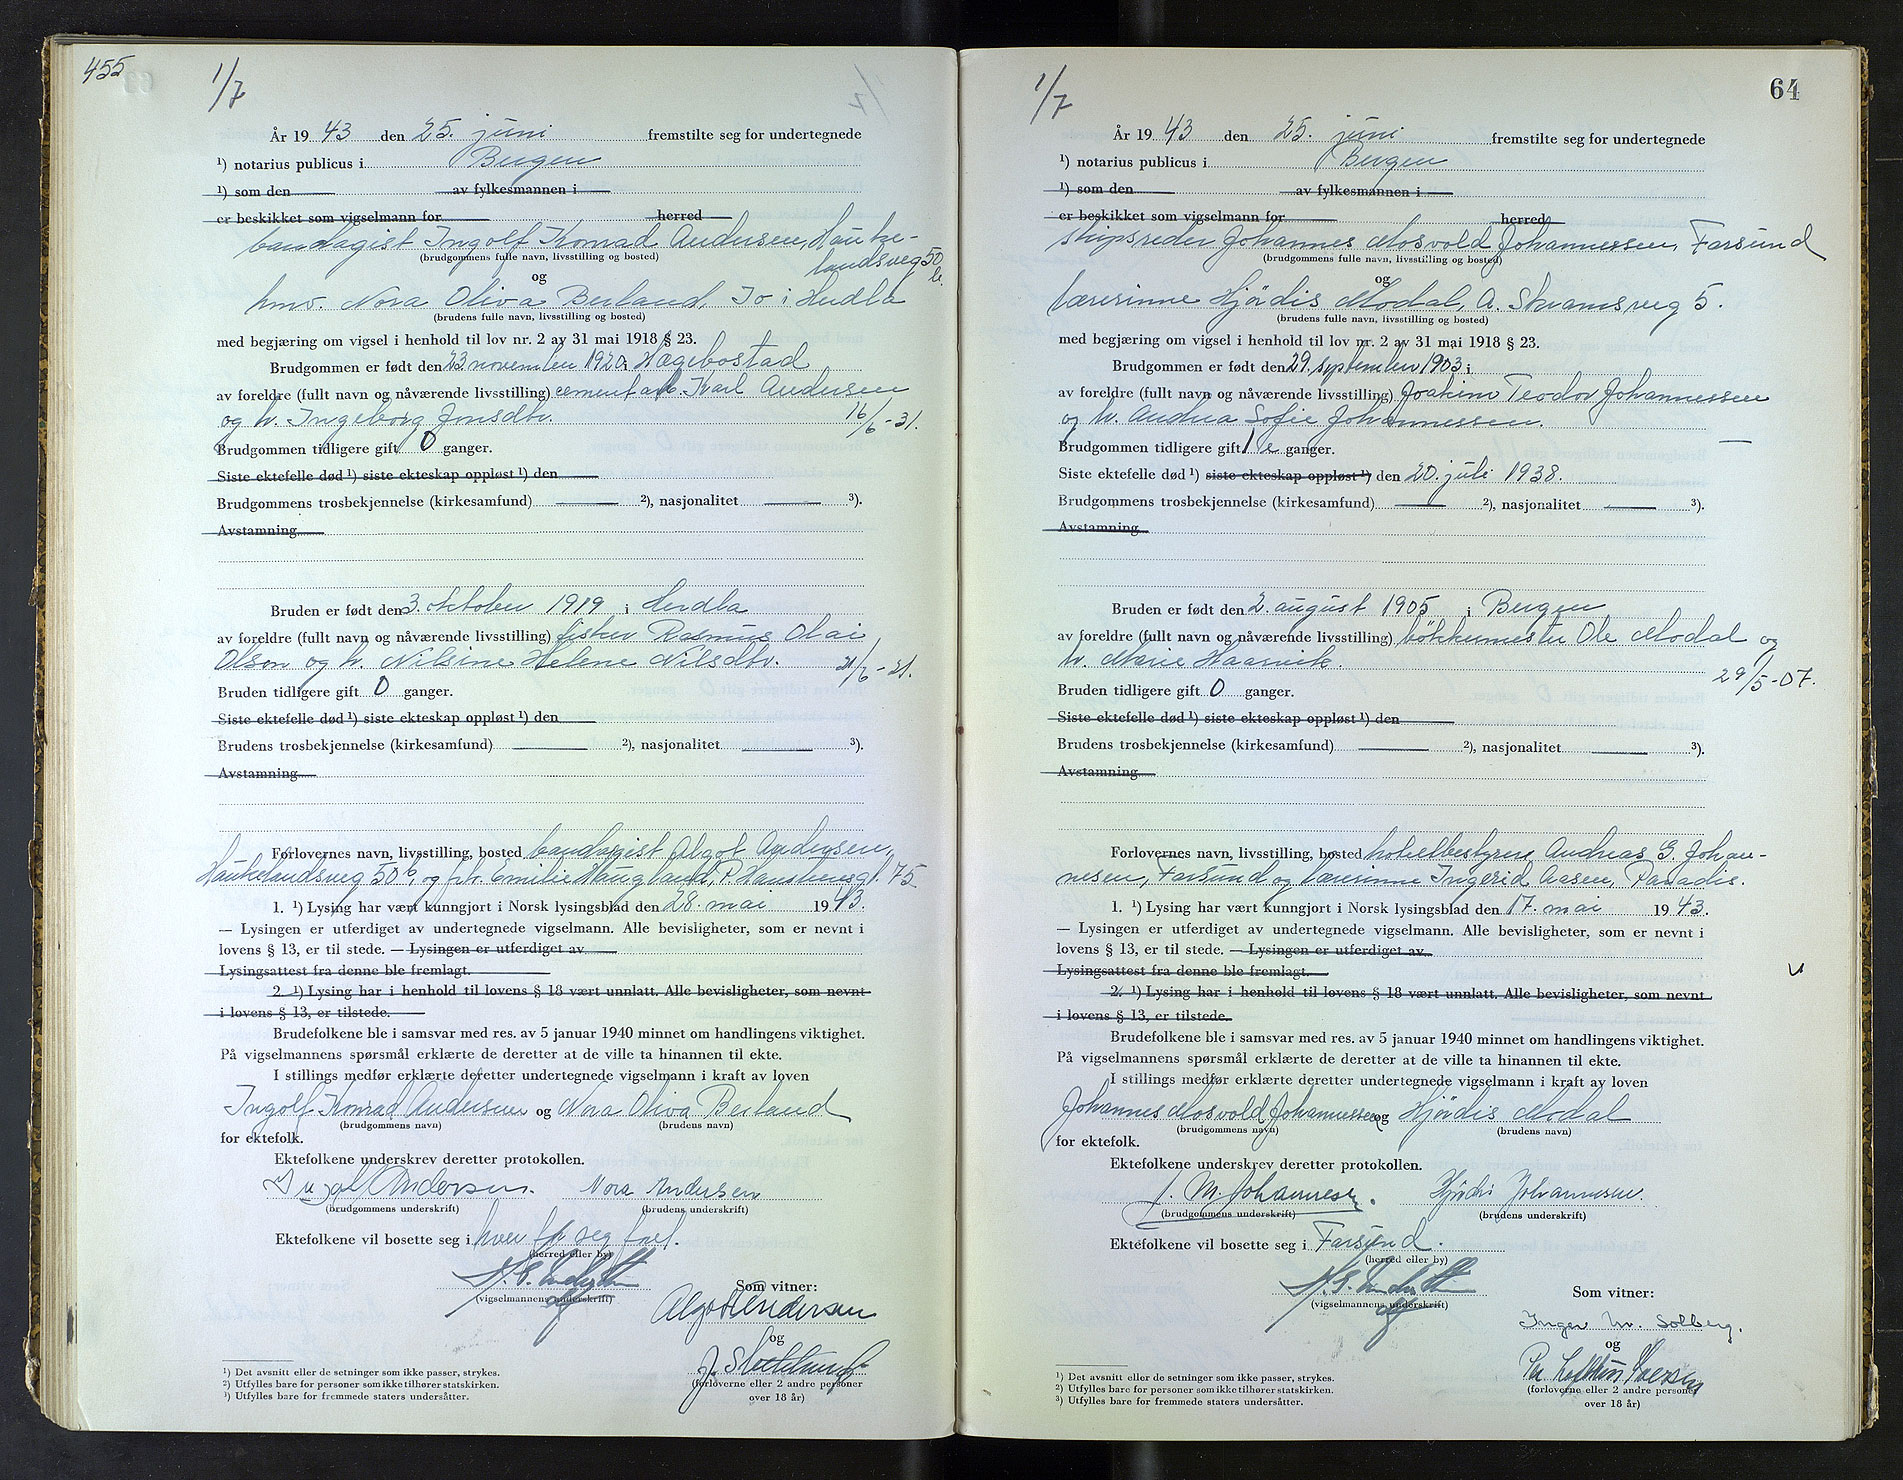 455
1/7
År 19 43 den 25. juni fremstilte seg for undertegnede
¹) notarius publicus i Bergen
¹) som den av fylkesmannen i
er beskikket som vigselmann for herred
bandagist Ingolf Konrad Andersen, Hauke-
(brudgommens fulle navn, livsstilling og bosted)
landsveg 50
b.
og
hmv. Nora Oliva Berland, Io i Herdla
(brudens fulle navn, livsstilling og bosted)
med begjæring om vigsel i henhold til lov nr. 2 av 31 mai 1918 § 23.
Brudgommen er født den 23 november 1920 i Hægebostad
av foreldre (fullt navn og nåværende livsstilling) cementarb. Karl Andersen
og h. Ingeborg Jonsdtr. 16/6-31.
Brudgommen tidligere gift 0 ganger.
Siste ektefelle død ¹) siste ekteskap oppløst ¹) den
Brudgommens trosbekjennelse (kirkesamfund) ²), nasjonalitet ³).
Avstamning
Bruden er født den 3. oktober 1919 i Herdla
av foreldre (fullt navn og nåværende livsstilling) fisker Rasmus Olai
Olson og h. Nilsine Helene Nilsdtr. 21/6-21.
Bruden tidligere gift 0 ganger.
Siste ektefelle død ¹) siste ekteskap oppløst ¹) den
Brudens trosbekjennelse (kirkesamfund) ²), nasjonalitet ³).
Avstamning
Forlovernes navn, livsstilling, bosted bandagist Algot Andersen,
Haukelandsveg 50 b, og frk. Emilie Haugland, P. Hansteensgt. 75
1. ¹) Lysing har vært kunngjort i Norsk lysingsblad den 28. mai 19 43.
— Lysingen er utferdiget av undertegnede vigselmann. Alle bevisligheter, som er nevnt i
lovens § 13, er til stede. — Lysingen er utferdiget av
Lysingsattest fra denne ble fremlagt.
2. ¹) Lysing har i henhold til lovens § 18 vært unnlatt. Alle bevisligheter, som nevnt
i lovens § 13, er tilstede.
Brudefolkene ble i samsvar med res. av 5 januar 1940 minnet om handlingens viktighet.
På vigselmannens spørsmål erklærte de deretter at de ville ta hinannen til ekte.
I stillings medfør erklærte deretter undertegnede vigselmann i kraft av loven
Ingolf Konrad Andersen og Nora Oliva Berland
(brudgommens navn) (brudens navn)
for ektefolk.
Ektefolkene underskrev deretter protokollen.
Ingolf Andersen. Nora Andersen
(brudgommens underskrift) (brudens underskrift)
Ektefolkene vil bosette seg i hver for seg forel.
(herred eller by)
(vigselmannens underskrift)
Som vitner:
Algot Andersen
og
(forloverne eller 2 andre personer
over 18 år)
¹) Det avsnitt eller de setninger som ikke passer, strykes.
²) Utfylles bare for personer som ikke tilhører statskirken.
³) Utfylles bare for fremmede staters undersåtter.
64
1/7
År 19 43 den 25. juni fremstilte seg for undertegnede
¹) notarius publicus i Bergen
¹) som den av fylkesmannen i
er beskikket som vigselmann for herred
skipsreder Johannes Mosvold Johannessen, Farsund
(brudgommens fulle navn, livsstilling og bosted)
og
lærerinne Hjørdis Modal, A. Skramsveg 5.
(brudens fulle navn, livsstilling og bosted)
med begjæring om vigsel i henhold til lov nr. 2 av 31 mai 1918 § 23.
Brudgommen er født den 29. september 1903 i
av foreldre (fullt navn og nåværende livsstilling) Joakim Teodor Johannessen
og h. Andrea Sofie Johannessen.
Brudgommen tidligere gift 1 ganger.
Siste ektefelle død ¹) siste ekteskap oppløst ¹) den 20. juli 1938.
Brudgommens trosbekjennelse (kirkesamfund) ²), nasjonalitet ³).
Avstamning
Bruden er født den 2. august 1905 i Bergen
av foreldre (fullt navn og nåværende livsstilling) bøkkermester Ole Modal og
h. Marie Haarvik. 29/5-07.
Bruden tidligere gift 0 ganger.
Siste ektefelle død ¹) siste ekteskap oppløst ¹) den
Brudens trosbekjennelse (kirkesamfund) ²), nasjonalitet ³).
Avstamning
Forlovernes navn, livsstilling, bosted hotelbestyrer Andreas G. Johan-
nesen, Farsund og lærerinne Ingerid Aasen, Paradis.
1. ¹) Lysing har vært kunngjort i Norsk lysingsblad den 17. mai 19 43.
— Lysingen er utferdiget av undertegnede vigselmann. Alle bevisligheter, som er nevnt i
lovens § 13, er til stede. — Lysingen er utferdiget av
Lysingsattest fra denne ble fremlagt.
2. ¹) Lysing har i henhold til lovens § 18 vært unnlatt. Alle bevisligheter, som nevnt
i lovens § 13, er tilstede.
Brudefolkene ble i samsvar med res. av 5 januar 1940 minnet om handlingens viktighet.
På vigselmannens spørsmål erklærte de deretter at de ville ta hinannen til ekte.
I stillings medfør erklærte deretter undertegnede vigselmann i kraft av loven
Johannes Mosvold Johannessen og Hjørdis Modal
(brudgommens navn) (brudens navn)
for ektefolk.
Ektefolkene underskrev deretter protokollen.
J. M. Johannessen. Hjørdis Johannessen.
(brudgommens underskrift) (brudens underskrift)
Ektefolkene vil bosette seg i Farsund.
(herred eller by)
(vigselmannens underskrift)
Som vitner:
Inger M. Solberg.
og
(forloverne eller 2 andre personer
over 18 år)
¹) Det avsnitt eller de setninger som ikke passer, strykes.
²) Utfylles bare for personer som ikke tilhører statskirken.
³) Utfylles bare for fremmede staters undersåtter.